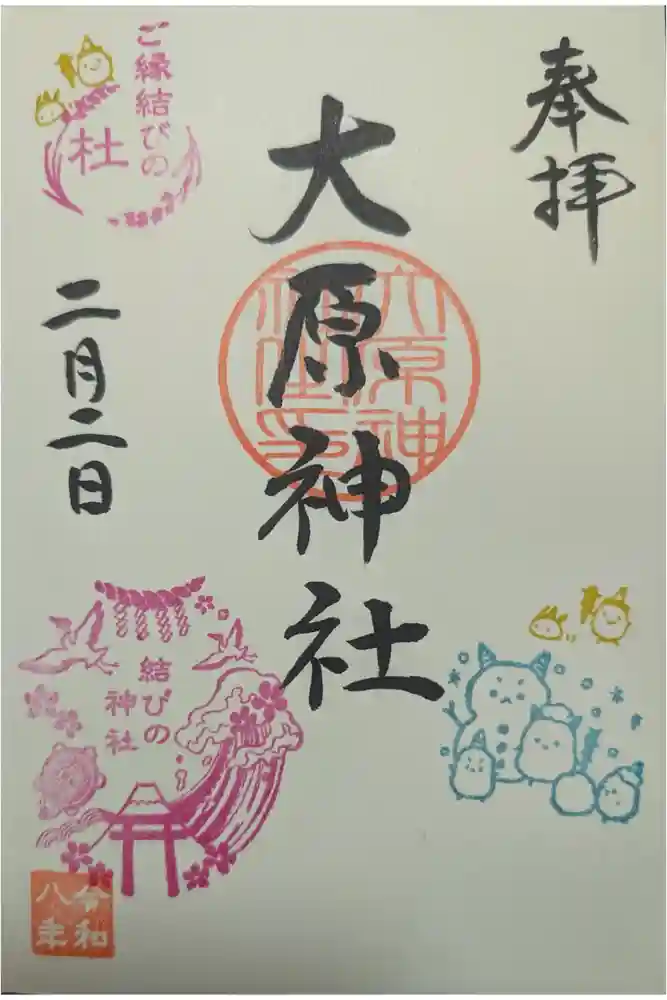 奉拝
大原神社
大原神
社之印
ご縁結びの
杜
二月二日
結びの
神社
令和
八年